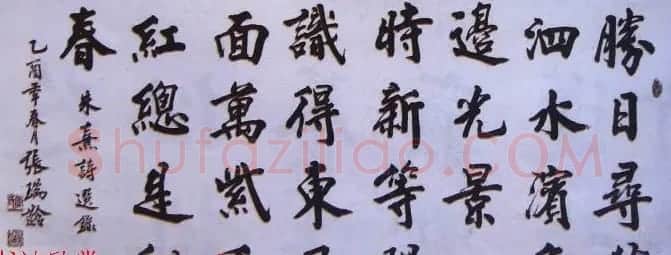 勝日尋
泗水濱
邊光景
時新等
識得東
面萬紫
紅總是
春
朱熹詩選錄
乙酉年春月張瑞齡
Shufaziliao.COM